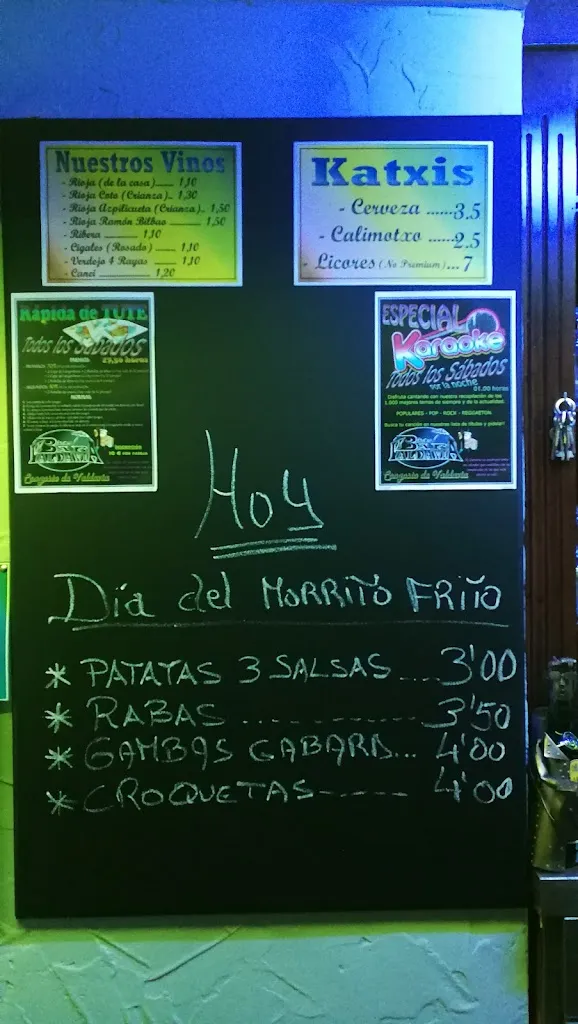 Nuestros Vinos
- Rioja (de la casa)...... 1,10
- Rioja Coto (Crianza).. 1,30
- Rioja Azpilicueta (Crianza).. 1,50
- Rioja Ramón Bilbao .......... 1,50
- Ribera .......... 1,10
- Cigales (Rosado) ....... 1,10
- Verdejo 4 Rayas ....... 1,10
- Canei ............... 1,20
Katxis
- Cerveza ......3.5
- Calimotxo ......2.5
- Licores (No Premium)... 7
Rápida de TUTE
Todos los Sábados
Congosto de Valdavia
ESPECIAL
Karaoke
Todos los Sábados
por la noche
01.00 horas
Disfruta cantando con nuestra recopilación de las
1.000 mejores temas de siempre y de la actualidad.
POPULARES - POP - ROCK - REGGAETON
Busca tu canción en nuestras listas de títulos y pídela!!
Congosto de Valdavia
Hoy
Día del MORRITO FRITO
* PATATAS 3 SALSAS .... 3'00
* RABAS ............ 3'50
* GAMBAS GABARD... 4'00
* CROQUETAS------ 4'00